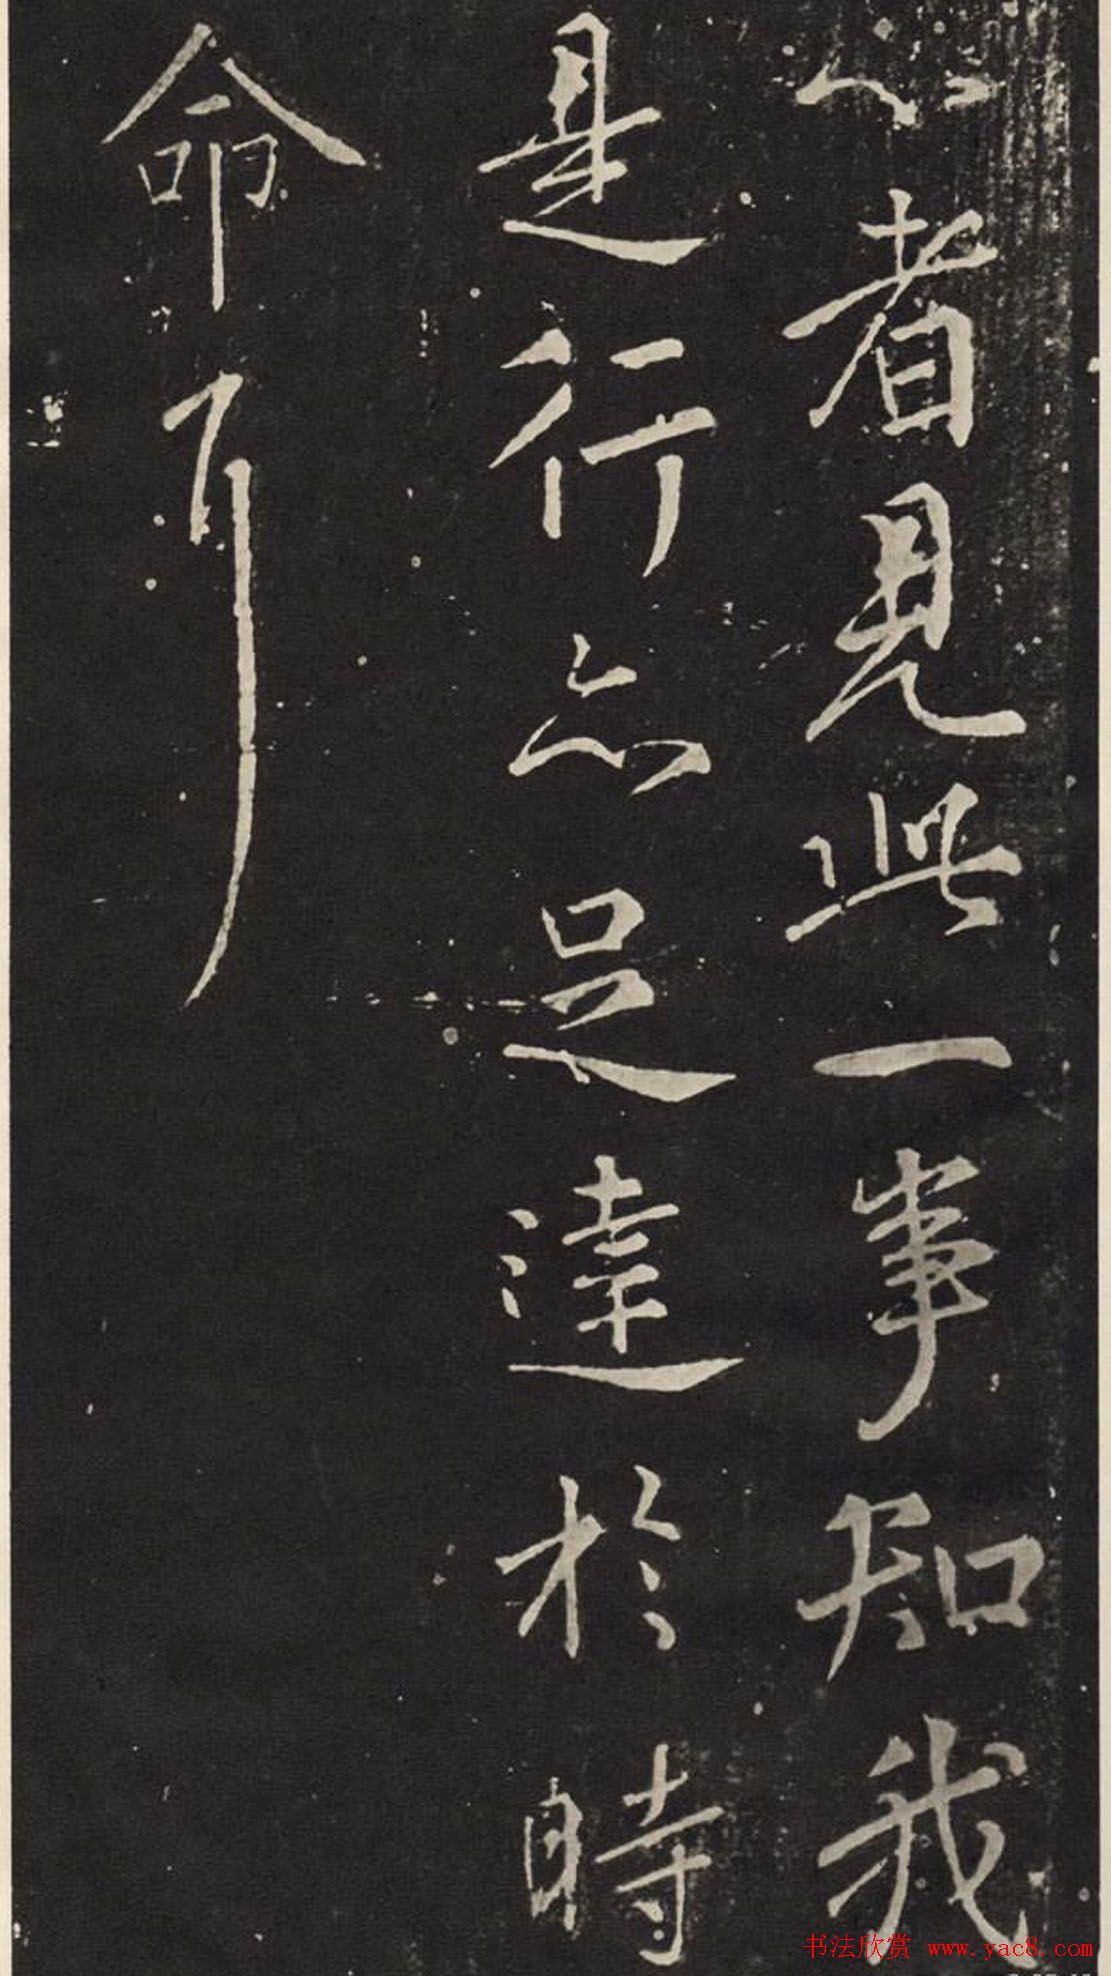 心者見此一事知我
是行亦足達於時
命耳
书法欣赏 www.yac8.com